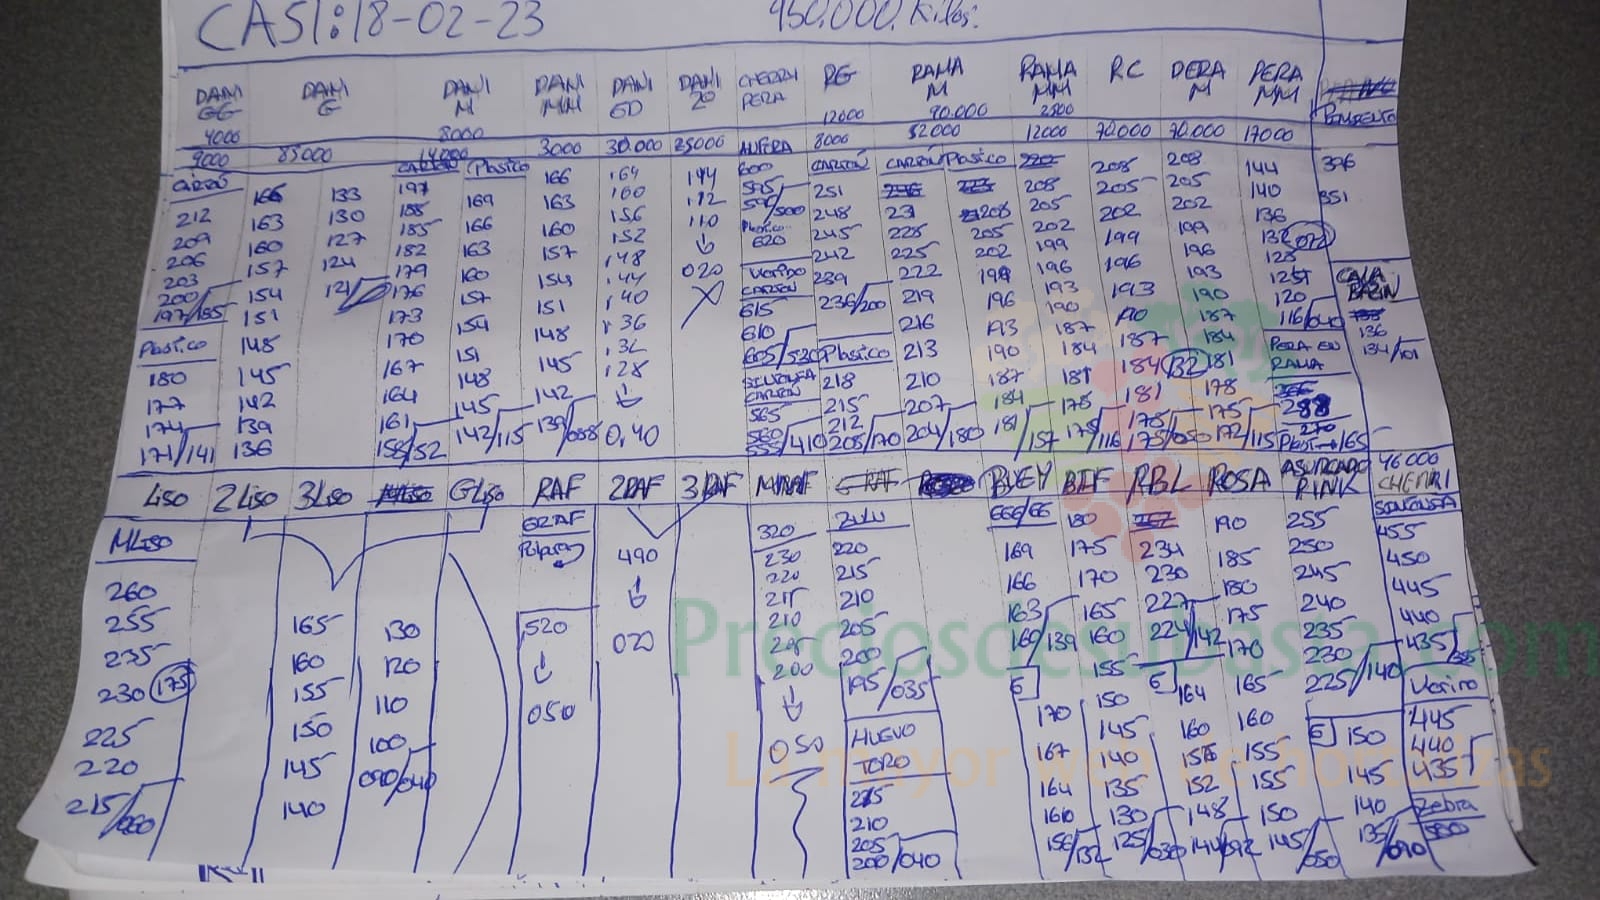 CASI: 18-02-23 950.000 Kilos.
DANI GG DANI G DANI M DANI MM DANI GD DANI 20 CHERRY PERA RG RAMA M RAMA MM RC PERA M PERA MM
12000 90.000 2500 PIMIENTO
4000 8000
9000 85000 14000 3000 30.000 25000 8000 52000 12000 70.000 70.000 17000
CARTÓN CARTÓN Plastico 600 CARTÓN CARTÓN Plastico
166 133 197 169 166 164 114 595 251 208 208 144 396
212 163 130 188 166 163 160 112 590/500 248 231 208 208 205 205 140 351
209 160 127 185 163 160 156 110 Plastico 245 228 205 205 202 202 136
206 157 124 182 160 157 152 620 242 225 202 202 199 199 132 072
203 154 121 179 157 154 148 020 Verido CARTÓN 239 222 199 199 196 196 128
200 151 176 154 151 144 615 236/200 219 196 196 193 193 125
197/185 148 173 151 148 140 610 216 193 193 190 190 120
Plastico 145 170 148 145 136 605/530 Plastico 213 190 190 187 187 116/040
180 142 167 145 142 132 CARTÓN 218 210 187 187 184 184 PERA EN RAMA
177 139 164 142/115 139/088 128 565 215 207 184 184 181 181 288
174 136 161 0,40 560 212 204/180 181/157 181 178 178 270
171/141 158/52 555/410 208/170 178 175/050 175 Plast→165
178/116 132 172/115
CALABACIN
136
134/101
LISO 2LISO 3LISO GLISO RAF 2RAF 3RAF MRAF BUEY BIF RBL ROSA ASURCADO PINK 46000 CHERRI
MLISO
260
255
235
230 175
225
220
215/060
165
160
155
150
145
140
130
120
110
100
090/040
GRAF
520
050
490
020
320
230
220
215
210
205
200
050
ZULU
220
215
210
205
200
195/035
HUEVO TORO
215
210
205
200/040
666/66
169
166
163
160/139
6
170
167
164
160
156/132
180
175
170
165
160
155
150
145
140
135
130
125/030
234
230
227
224/142
6
164
160
156
152
148
144/092
190
185
180
175
170
165
160
155
155
150
145/050
255
250
245
240
235
230
225/140
6
150
145
140
135/090
455
450
445
440
435/355
Verino
445
440
435
Zebra
500
Preciosdesubasta.com